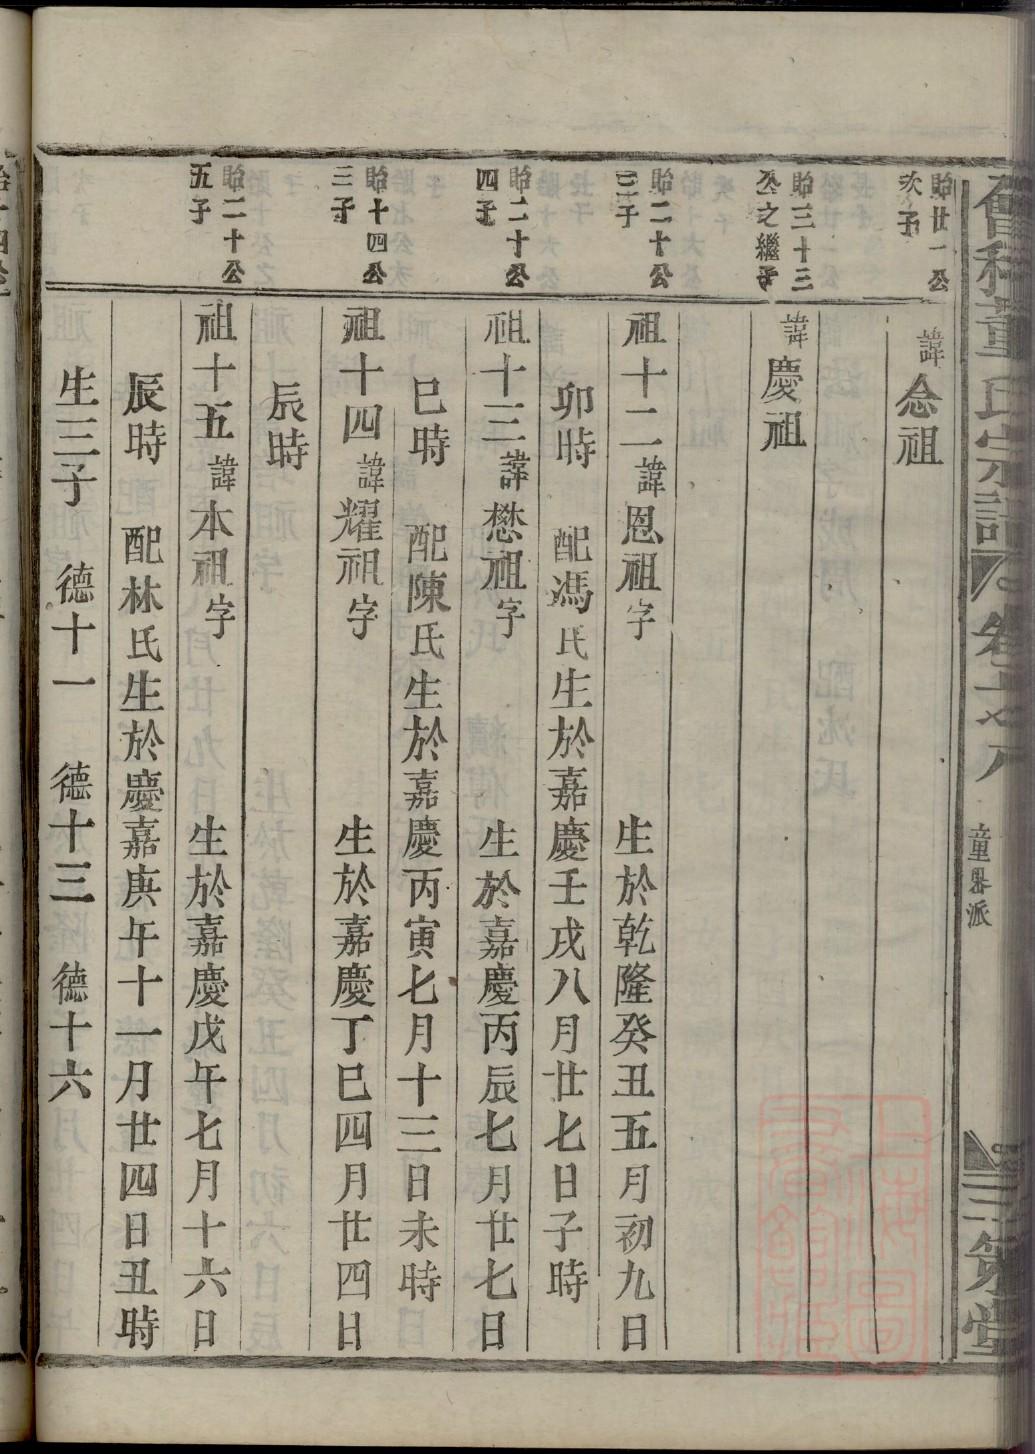 會稽童氏宗譜
童畧派
三策堂
貽廿一公
次子
諱念祖
貽三十三
公之繼子
諱慶祖
貽二十公
三子
祖十二諱恩祖字 生於乾隆癸丑五月初九日
卯時 配馮氏生於嘉慶壬戌八月廿七日子時
貽二十公
四子
祖十三諱懋祖字 生於嘉慶丙辰七月廿七日
巳時 配陳氏生於嘉慶丙寅七月十三日未時
貽十四公
三子
祖十四諱耀祖字 生於嘉慶丁巳四月廿四日
辰時
貽二十公
五子
祖十五諱本祖字 生於嘉慶戊午七月十六日
辰時 配林氏生於慶嘉庚午十一月廿四日丑時
生三子 德十一 德十三 德十六